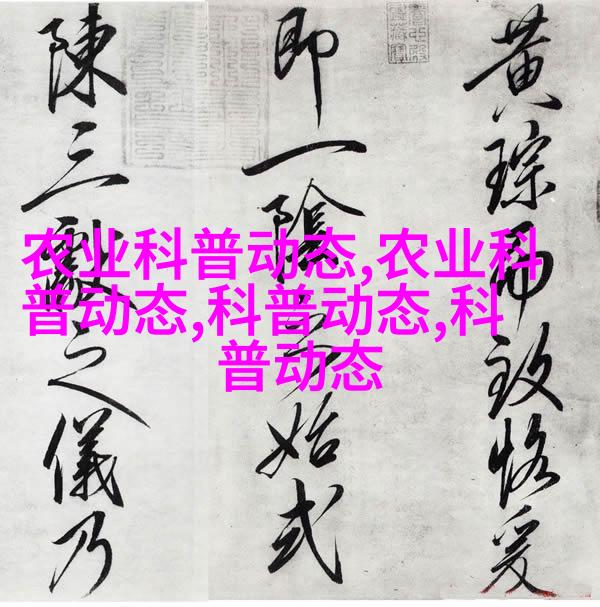 农业科普动态,农业科
普动态,科普动态,科
普动态
黄琮致恪爰
即一陰之始式
陳三獻之儀乃